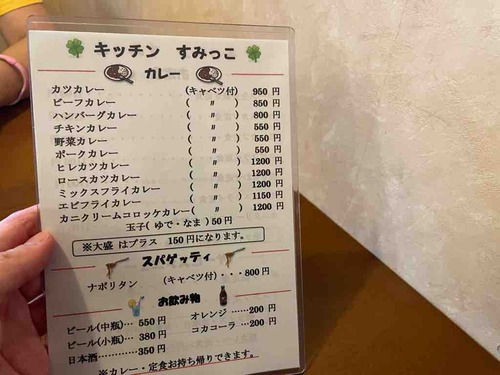 キッチン すみっこ
カレー
カツカレー (キャベツ付) 950 円
ビーフカレー ( 〃 ) 850 円
ハンバーグカレー ( 〃 ) 800 円
チキンカレー ( 〃 ) 550 円
野菜カレー ( 〃 ) 550 円
ポークカレー ( 〃 ) 550 円
ヒレカツカレー ( 〃 ) 1200 円
ロースカツカレー ( 〃 ) 1200 円
ミックスフライカレー ( 〃 ) 1200 円
エビフライカレー ( 〃 ) 1150 円
カニクリームコロッケカレー( 〃 ) 1200 円
玉子( ゆで・なま ) 50 円
※大盛 はプラス 150円になります。
スパゲッティ
ナポリタン (キャベツ付)・・・800 円
お飲み物
ビール(中瓶)… 550 円
ビール(小瓶)… 380 円
日本酒…………350 円
オレンジ ……200 円
コカコーラ …200 円
※カレー・定食お持ち帰りできます。